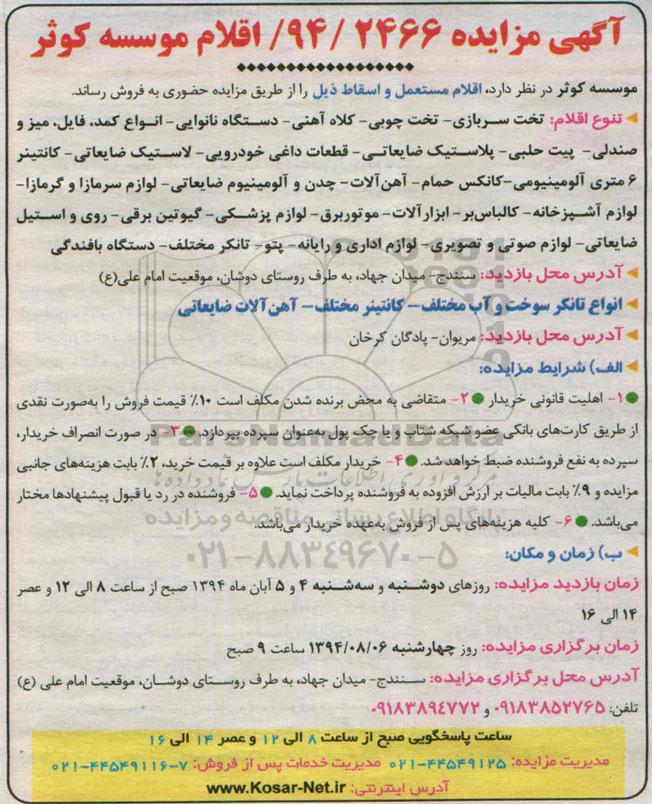 آگهی مزایده ۲۴۶۶ /۹۴/ اقلام موسسه کوثر
موسسه کوثر در نظر دارد، اقلام مستعمل و اسقاط ذیل را از طریق مزایده حضوری به فروش رساند.
تنوع اقلام: تخت سربازی- تخت چوبی- کلاه آهنی- دستگاه نانوایی- انواع کمد، فایل، میز و
صندلی- پیت حلبی- پلاستیک ضایعاتی- قطعات داغی خودرویی- لاستیک ضایعاتی- کانتینر
۶ متری آلومینیومی-کانکس حمام- آهن‌آلات- چدن و آلومینیوم ضایعاتی- لوازم سرمازا و گرمازا-
لوازم آشپزخانه- کالباس‌بر- ابزارآلات- موتوربرق- لوازم پزشکی- گیوتین برقی- روی و استیل
ضایعاتی- لوازم صوتی و تصویری- لوازم اداری و رایانه- پتو- تانکر مختلف- دستگاه بافندگی
آدرس محل بازدید: سنندج- میدان جهاد، به طرف روستای دوشان، موقعیت امام علی(ع)
انواع تانکر سوخت و آب مختلف- کانتینر مختلف- آهن‌آلات ضایعاتی
آدرس محل بازدید: مریوان- پادگان کرخان
الف) شرایط مزایده:
۱- اهلیت قانونی خریدار ۲- متقاضی به محض برنده شدن مکلف است ۱۰٪ قیمت فروش را به‌صورت نقدی
از طریق کارت‌های بانکی عضو شبکه شتاب و یا چک پول به‌عنوان سپرده بپردازد. ۳- در صورت انصراف خریدار،
سپرده به نفع فروشنده ضبط خواهد شد. ۴- خریدار مکلف است علاوه بر قیمت خرید، ۲٪ بابت هزینه‌های جانبی
مزایده و ۹٪ بابت مالیات بر ارزش افزوده به فروشنده پرداخت نماید. ۵- فروشنده در رد یا قبول پیشنهادها مختار
می‌باشد. ۶- کلیه هزینه‌های پس از فروش به‌عهده خریدار می‌باشد.
ParsNamadData
پایگاه اطلاع رسانی مناقصه و مزایده
۰۲۱-۸۸۳۴۹۶۷۰-۵
ب) زمان و مکان:
زمان بازدید مزایده: روزهای دوشنبه و سه‌شنبه ۴ و ۵ آبان ماه ۱۳۹۴ صبح از ساعت ۸ الی ۱۲ و عصر
۱۴ الی ۱۶
زمان برگزاری مزایده: روز چهارشنبه ۱۳۹۴/۰۸/۰۶ ساعت ۹ صبح
آدرس محل برگزاری مزایده: سنندج- میدان جهاد، به طرف روستای دوشان، موقعیت امام علی (ع)
تلفن: ۰۹۱۸۳۸۵۲۷۶۵ و ۰۹۱۸۳۸۹۴۷۷۲
ساعت پاسخگویی صبح از ساعت ۸ الی ۱۲ و عصر ۱۴ الی ۱۶
مدیریت مزایده: ۴۴۵۴۹۱۲۵-۰۲۱ مدیریت خدمات پس از فروش: ۷-۴۴۵۴۹۱۱۶-۰۲۱
آدرس اینترنتی: www.Kosar-Net.ir